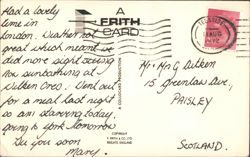 Had a lovely
time in
London. Weather not
great which meant we
did more sightseeing
than sunbathing at
Went out
for a meal last night
so am starving today,
going to York tomorrow
See you soon
Mary.
A
FRITH
CARD
A COLLOCARD PRODUCTION
COPYRIGHT
F. FRITH & CO. LTD
REIGATE ENGLAND
Mr. & Mrs G Aitken
15 Greenlaw Ave,
PAISLEY
SCOTLAND.